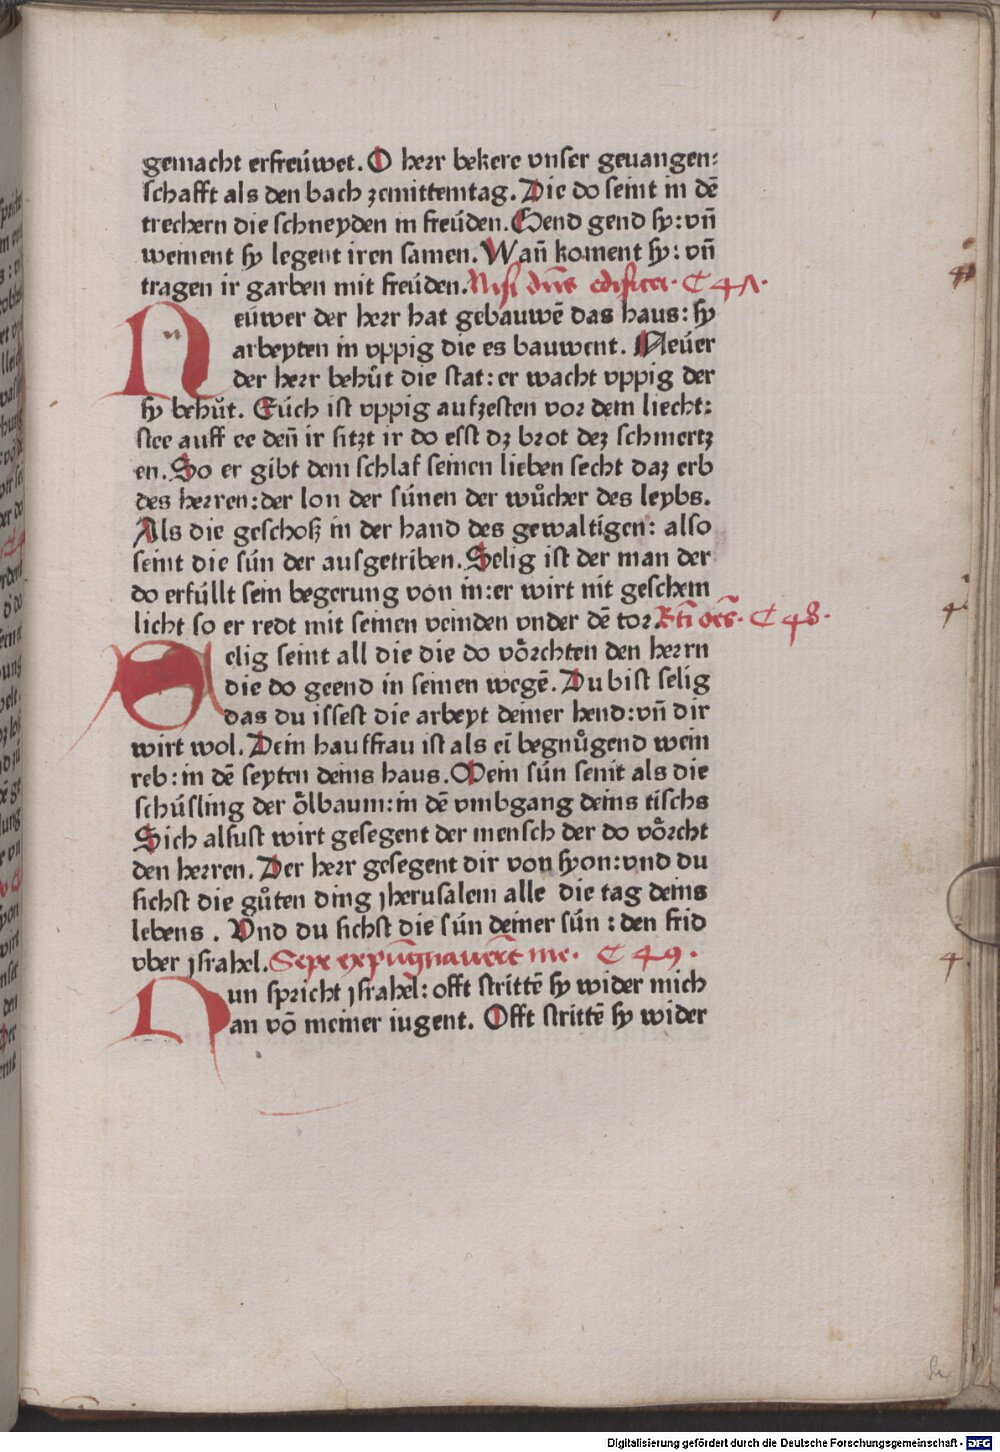 gemacht erfreúwet. O herr bekere vnser geuangen:
schafft als den bach zemittemtag. Die do seint in dē
trechern die schneyden in freúden. Gend gend sy: vn̄
weinent sy legent iren samen. Wan̄ koment sy: vn̄
tragen ir garben mit freúden. Nisi dn̄s edificer. C 47.
Neúwer der herr hat gebauwē das haus: sy
arbeyten in vppig die es bauwent. Neúer
der herr behuͤt die stat: er wacht vppig der
sy behuͤt. Eúch ist vppig aufzesten vor dem liecht:
stee auff ee den̄ ir sitzt ir do esst dz brot dez schmertz
en. So er gibt dem schlaf seinen lieben secht daz erb
des herren: der lon der súnen der wuͦcher des leybs.
Als die geschoß in der hand des gewaltigen: also
seint die sún der ausgetriben. Selig ist der man der
do erfúllt sein begerung von in: er wirt nit geschem
licht so er redt mit seinen veinden vnder dē tor. Bt̄i oēs. C 48.
Selig seint all die die do voͤrchten den herrn
die do geend in seinen wegē. Du bist selig
das du issest die arbeyt deiner hend: vn̄ dir
wirt wol. Dein hauffrau ist als ei̅ begnuͤgend wein
reb: in dē seyten deins haus. Dein sún seint als die
schúsling der oͤlbaum: in dē vmbgang deins tischs
Sich alsust wirt gesegent der mensch der do voͤrcht
den herren. Der herr gesegent dir von syon: vnd du
sichst die guͦten ding jherusalem alle die tag deins
lebens. Vnd du sichst die sún deiner sún: den frid
vber jsrahel. Sepe expugnauer̄t me. C 49.
Nun spricht jsrahel: offt strittē sy wider mich
an vō meiner iugent. Offt strittē sy wider
Digitalisierung gefördert durch die Deutsche Forschungsgemeinschaft - DFG